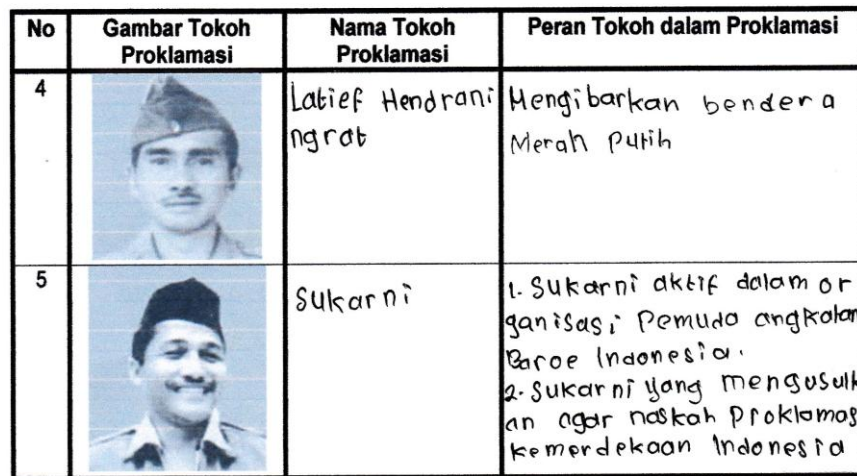 No Gambar Tokoh Proklamasi Nama Tokoh Proklamasi Peran Tokoh dalam Proklamasi
4
Latief Hendrani
ngrat
Mengibarkan bendera
Merah Putih
5
Sukarni
1. Sukarni aktif dalam or
ganisasi Pemuda angkatan
Baroe Indonesia.
2. Sukarni yang mengusulk
an agar naskah Proklamas
kemerdekaan Indonesia